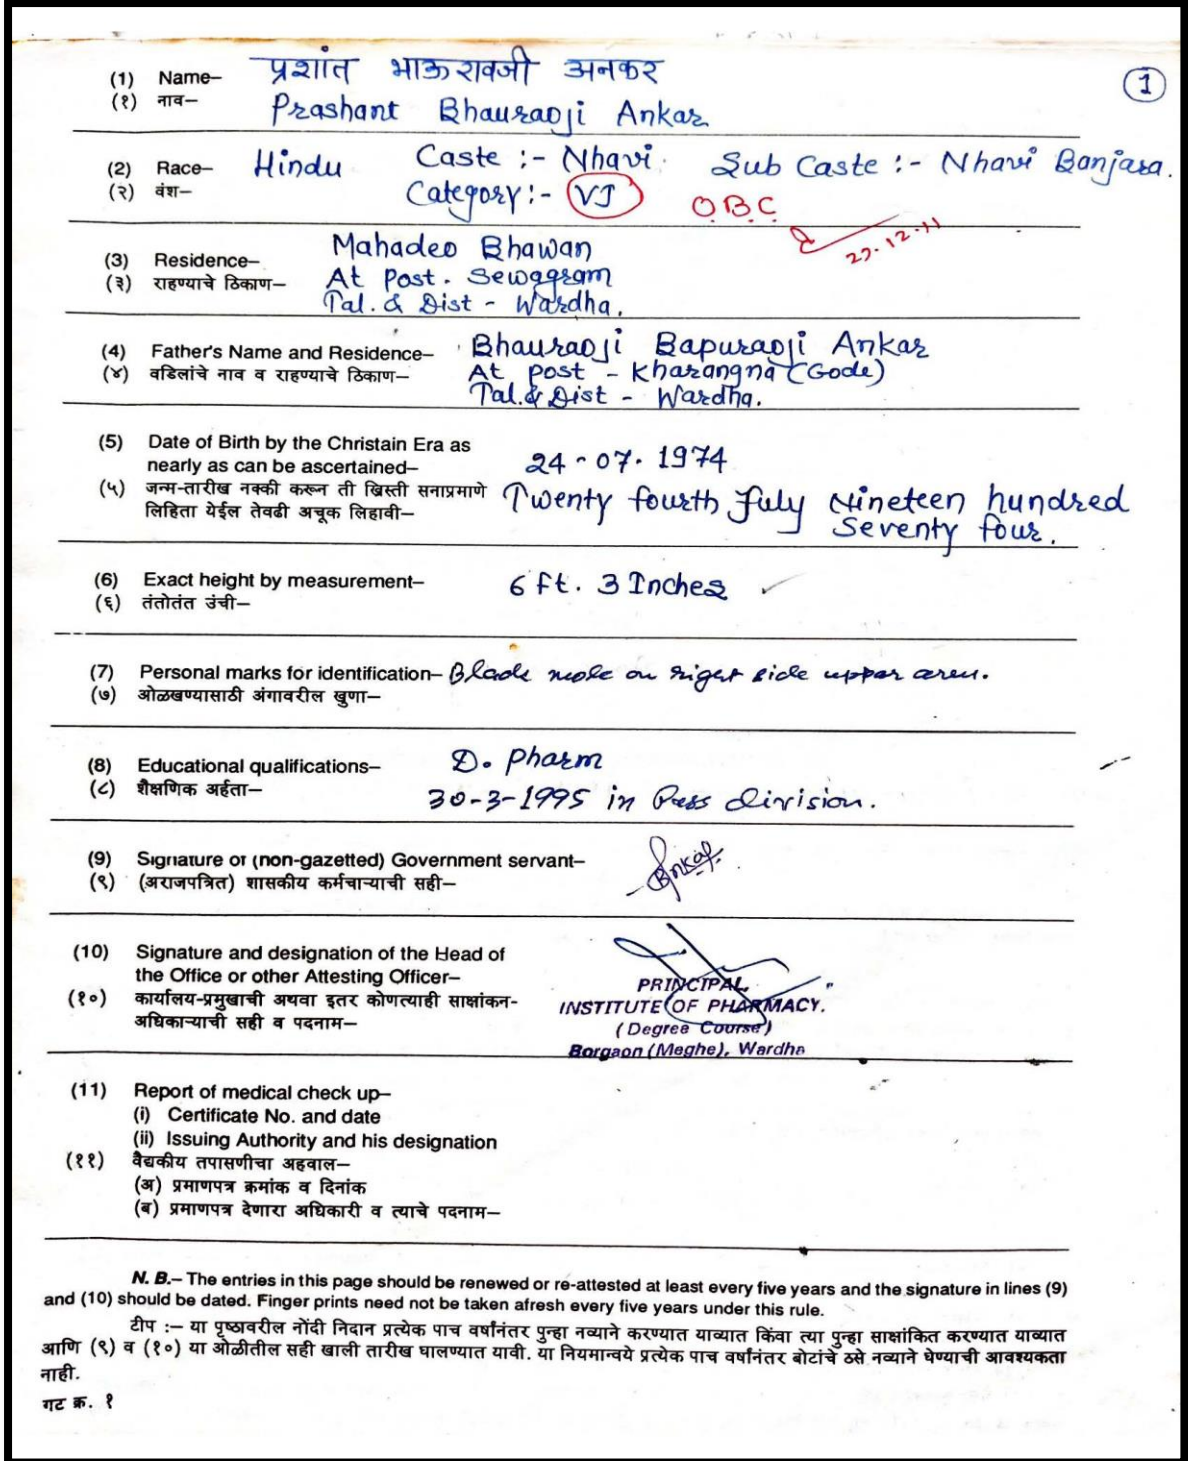 1
(1) Name– प्रशांत भाऊरावजी अनकर
(१) नाव– Prashant Bhauraoji Ankar
(2) Race– Hindu Caste :- Nhavi. Sub Caste :- Nhavi Banjara.
(२) वंश– Category:- VJ OBC
27.12.11
(3) Residence– Mahadeo Bhawan
(३) राहण्याचे ठिकाण– At Post. Sewagram
Tal. & Dist - Wardha.
(4) Father's Name and Residence– Bhauraoji Bapuraoji Ankar
(४) वडिलांचे नाव व राहण्याचे ठिकाण– At post - Kharangna (Gode)
Tal.& Dist - Wardha.
(5) Date of Birth by the Christain Era as
nearly as can be ascertained– 24-07. 1974
(५) जन्म-तारीख नक्की करून ती ख्रिस्ती सनाप्रमाणे Twenty fourth July Nineteen hundred
लिहिता येईल तेवढी अचूक लिहावी– Seventy four.
(6) Exact height by measurement– 6 ft. 3 Inches
(६) तंतोतंत उंची–
(7) Personal marks for identification– mole on right side upper
(७) ओळखण्यासाठी अंगावरील खुणा–
(8) Educational qualifications– D. Pharm
(८) शैक्षणिक अर्हता– 30-3-1995 in Pass division.
(9) Signature or (non-gazetted) Government servant– Ankar
(९) (अराजपत्रित) शासकीय कर्मचाऱ्याची सही–
(10) Signature and designation of the Head of
the Office or other Attesting Officer– PRINCIPAL,
(१०) कार्यालय-प्रमुखाची अथवा इतर कोणत्याही साक्षांकन- INSTITUTE OF PHARMACY.
अधिकाऱ्याची सही व पदनाम– (Degree Course)
Borgaon (Meghe), Wardha
(11) Report of medical check up–
(i) Certificate No. and date
(ii) Issuing Authority and his designation
(११) वैद्यकीय तपासणीचा अहवाल–
(अ) प्रमाणपत्र क्रमांक व दिनांक
(ब) प्रमाणपत्र देणारा अधिकारी व त्याचे पदनाम–
N. B.– The entries in this page should be renewed or re-attested at least every five years and the signature in lines (9)
and (10) should be dated. Finger prints need not be taken afresh every five years under this rule.
टीप :– या पृष्ठावरील नोंदी निदान प्रत्येक पाच वर्षांनंतर पुन्हा नव्याने करण्यात याव्यात किंवा त्या पुन्हा साक्षांकित करण्यात याव्यात
आणि (९) व (१०) या ओळीतील सही खाली तारीख घालण्यात यावी. या नियमान्वये प्रत्येक पाच वर्षांनंतर बोटांचे ठसे नव्याने घेण्याची आवश्यकता
नाही.
गट क्र. १